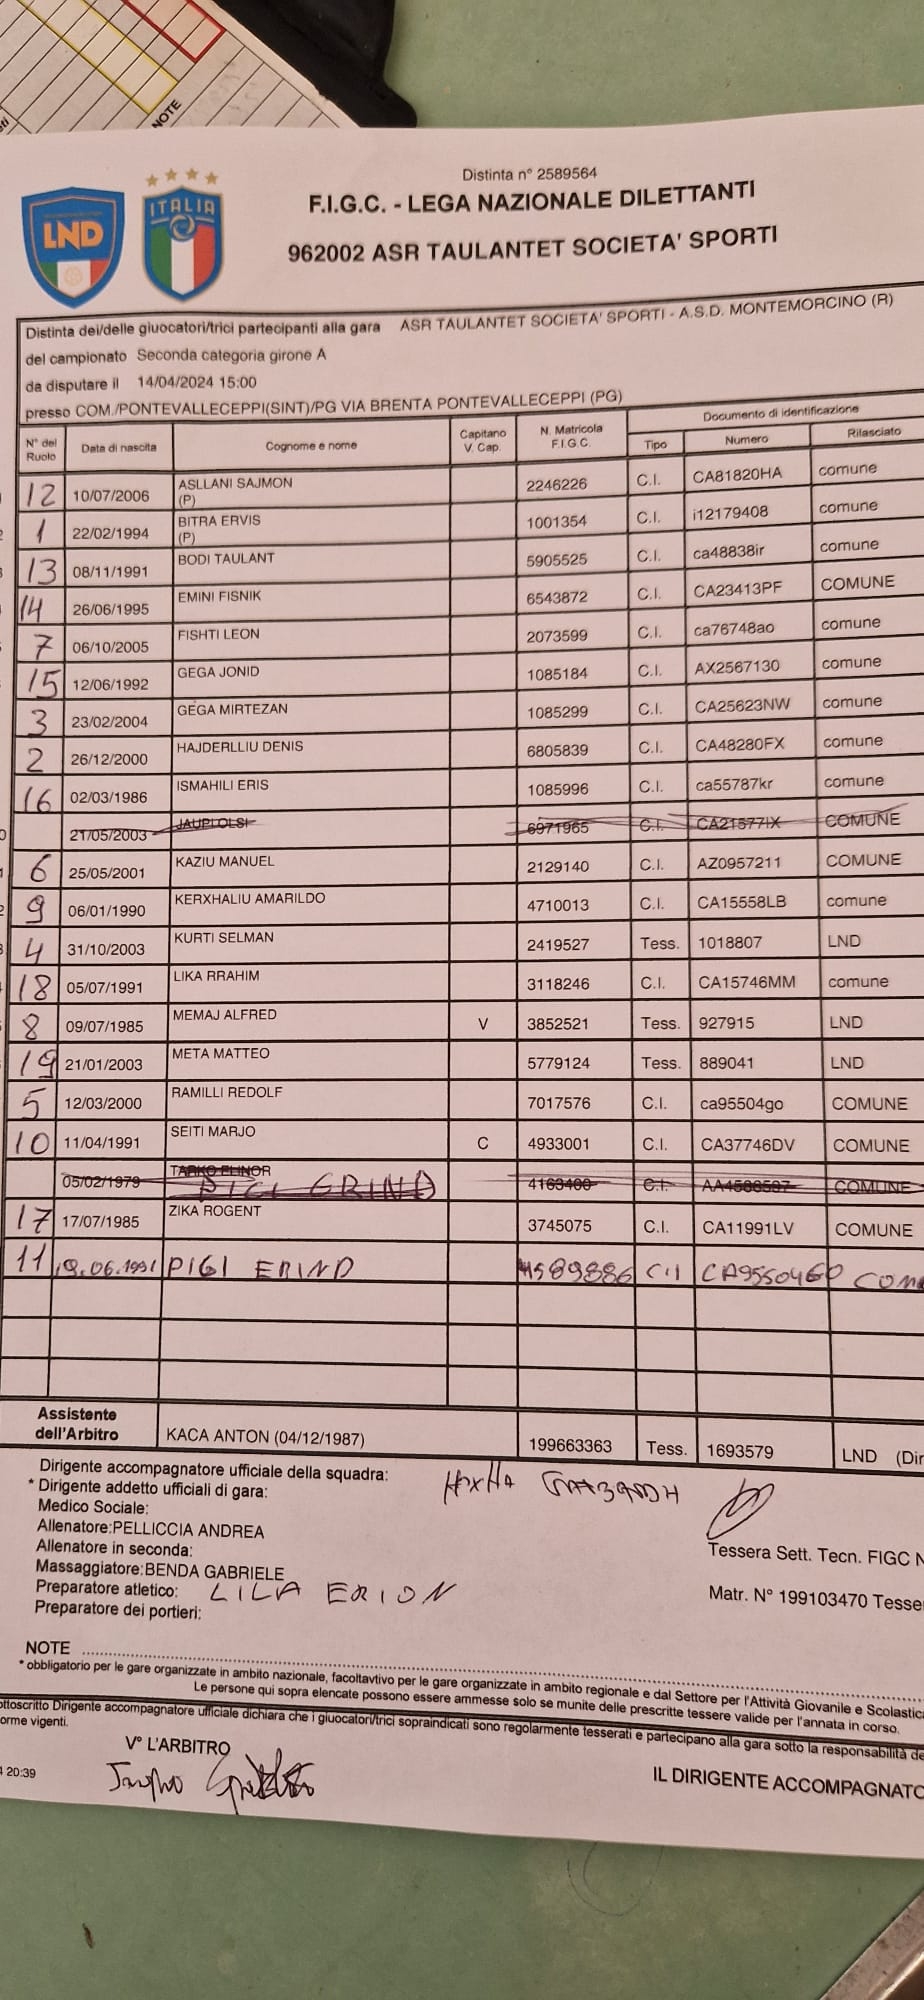 NOTE
Distinta n° 2589564
F.I.G.C. - LEGA NAZIONALE DILETTANTI
962002 ASR TAULANTET SOCIETA' SPORTI
LND
ITALIA
Distinta dei/delle giuocatori/trici partecipanti alla gara ASR TAULANTET SOCIETA' SPORTI - A.S.D. MONTEMORCINO (R)
del campionato Seconda categoria girone A
da disputare il 14/04/2024 15:00
presso COM./PONTEVALLECEPPI(SINT)/PG VIA BRENTA PONTEVALLECEPPI (PG)
N° del Ruolo Data di nascita Cognome e nome Capitano V. Cap. N. Matricola F.I.G.C. Documento di identificazione Tipo Numero Rilasciato
12 10/07/2006 ASLLANI SAJMON (P) 2246226 C.I. CA81820HA comune
1 22/02/1994 BITRA ERVIS (P) 1001354 C.I. i12179408 comune
13 08/11/1991 BODI TAULANT 5905525 C.I. ca48838ir comune
14 26/06/1995 EMINI FISNIK 6543872 C.I. CA23413PF COMUNE
7 06/10/2005 FISHTI LEON 2073599 C.I. ca76748ao comune
15 12/06/1992 GEGA JONID 1085184 C.I. AX2567130 comune
3 23/02/2004 GEGA MIRTEZAN 1085299 C.I. CA25623NW comune
2 26/12/2000 HAJDERLLIU DENIS 6805839 C.I. CA48280FX comune
16 02/03/1986 ISMAHILI ERIS 1085996 C.I. ca55787kr comune
21/05/2003 JAUPI OLSI 6971965 C.I. CA21577IX COMUNE
6 25/05/2001 KAZIU MANUEL 2129140 C.I. AZ0957211 COMUNE
9 06/01/1990 KERXHALIU AMARILDO 4710013 C.I. CA15558LB comune
4 31/10/2003 KURTI SELMAN 2419527 Tess. 1018807 LND
18 05/07/1991 LIKA RRAHIM 3118246 C.I. CA15746MM comune
8 09/07/1985 MEMAJ ALFRED V 3852521 Tess. 927915 LND
19 21/01/2003 META MATTEO 5779124 Tess. 889041 LND
5 12/03/2000 RAMILLI REDOLF 7017576 C.I. ca95504go COMUNE
10 11/04/1991 SEITI MARJO C 4933001 C.I. CA37746DV COMUNE
05/02/1979 TARKO ELINOR 4163400 C.I. COMUNE
17 17/07/1985 ZIKA ROGENT 3745075 C.I. CA11991LV COMUNE
11 19.06.1991 PIGI ERIND 4589886 C.I
Assistente dell'Arbitro KACA ANTON (04/12/1987) 199663363 Tess. 1693579 LND (Dir
Dirigente accompagnatore ufficiale della squadra:
* Dirigente addetto ufficiali di gara:
Medico Sociale:
Allenatore:PELLICCIA ANDREA
Tessera Sett. Tecn. FIGC N
Allenatore in seconda:
Massaggiatore:BENDA GABRIELE
Matr. N° 199103470 Tesse
Preparatore atletico: LILA ERION
Preparatore dei portieri:
NOTE
* obbligatorio per le gare organizzate in ambito nazionale, facoltavtivo per le gare organizzate in ambito regionale e dal Settore per l'Attività Giovanile e Scolastic
Le persone qui sopra elencate possono essere ammesse solo se munite delle prescritte tessere valide per l'annata in corso.
ottoscritto Dirigente accompagnatore ufficiale dichiara che i giuocatori/trici sopraindicati sono regolarmente tesserati e partecipano alla gara sotto la responsabilità de
orme vigenti.
V° L'ARBITRO
20:39
IL DIRIGENTE ACCOMPAGNATO